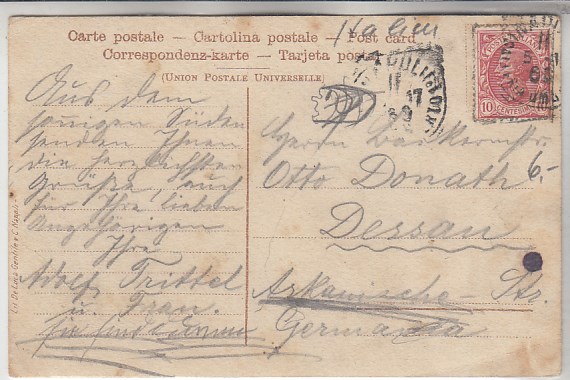 Italien
Carte postale – Cartolina postale – Post card
Correspondenz-karte – Tarjeta postal
(UNION POSTALE UNIVERSELLE)
Aus dem
sonnigen Süden
senden Ihnen
die herzlichsten
Grüße, auch
für Ihre lieben
Angehörigen
Ihre
Adolf Trittel
u. Frau.
Herrn
Otto Donath
Dessau
Askanische Str.
Germania
6,-
10
17